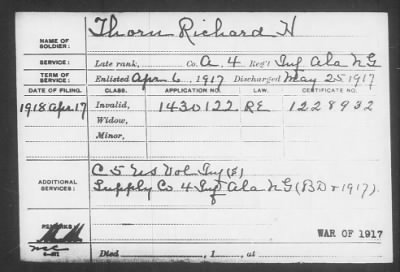 NAME OF SOLDIER: Thorn Richard H
SERVICE: Late rank, Co. A. 4 Reg't Inf Ala NG
TERM OF SERVICE: Enlisted Apr 6, 1917 Discharged May 25 1917
DATE OF FILING. CLASS. APPLICATION NO. LAW. CERTIFICATE NO.
1918 Apr. 17 Invalid, 1430122 RE 1228932
Widow,
Minor,
ADDITIONAL SERVICES: C 5 US Vol Inf (E)
Supply Co 4 Inf Ala NG (BD r 1917).
REMARKS:
WAR OF 1917
Died , 1 , at